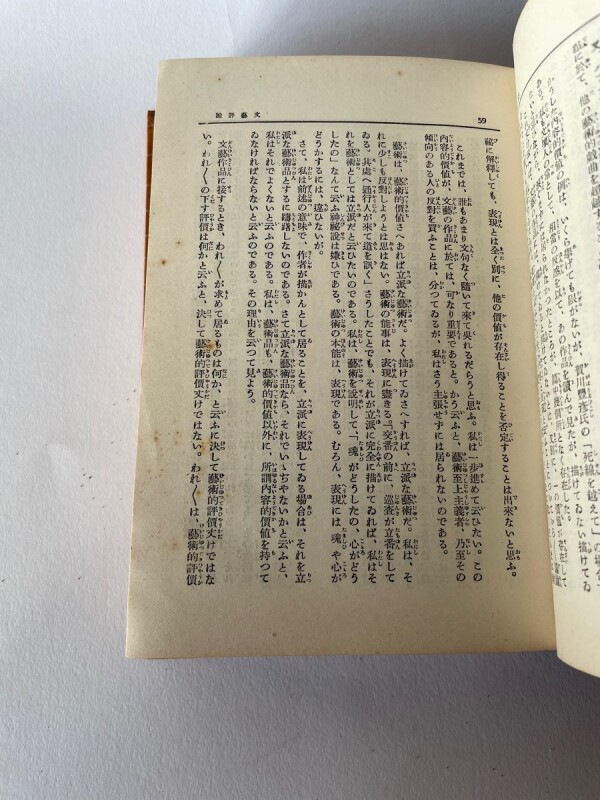 文藝評論
59
秘に解釋しても、表現とは全く別に、他の價値が存在し得ることを否定することは出來ないと思ふ。
これまでは、誰もあまり文句なく隨いて來て吳れるだらうと思ふ。私は一步進めて云ひたい。この
內容的價値が、文藝の作品に於ては、可なり重要であると。かう云ふと、藝術至上主義者、乃至その
傾向のある人の反對を買ふことは、分つてゐるが、私はさう主張せずには居られないのである。
藝術は、藝術的價値さへあれば立派な藝術だ。よく描けてゐさへすれば、立派な藝術だ。私は、そ
れに少しも反對しようとは思はない。藝術の能事は、表現に盡きる。「交番の前に、巡査が立番をして
ゐる。其處へ通行人が來て道を訊く」さうしたことでも、それが立派に完全に描けてゐれば、私はそ
れを藝術としては立派だと云ひたいのである。私は、藝術を說明して「魂がどうしたの、心がどう
したの」なんて云ふ神祕說は嫌ひである。藝術の本能は、表現である。むろん、表現には魂や心が
どうかするには、違ひないが。
さて、私は前述の意味で、作者が描かんとして居ることを、立派に表現してゐる場合は、それを立
派な藝術品とするに躊躇しないのである。さて立派な藝術品なら、それでいゝぢやないかと云ふと、
私はそれでよくないと云ふのである。私は、藝術品も、藝術的價値以外に、所謂內容的價値を持つて
ゐなければならないと云ふのである。その理由を云つて見よう。
文藝作品に接するとき、われ〱が求めて居るものは何か、と云ふに決して藝術的評價丈けではな
い。われ〱の下す評價は何かと云ふと、決して藝術的評價丈けではない。われ〱は、藝術的評價